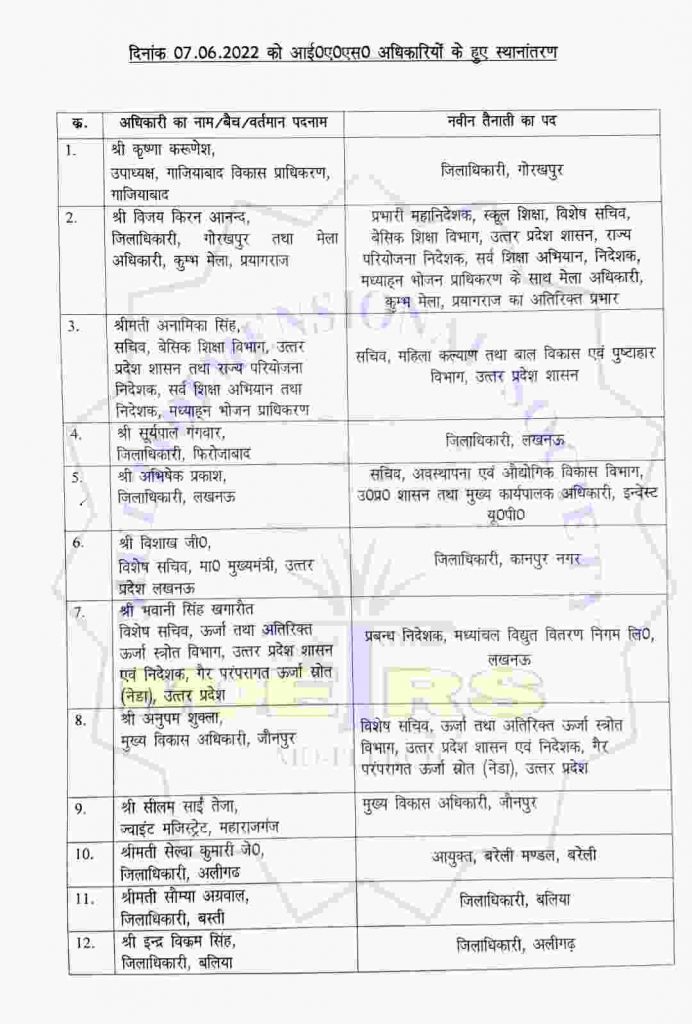 दिनांक 07.06.2022 को आई0ए0एस0 अधिकारियों के हुए स्थानांतरण
क्र.
अधिकारी का नाम/बैच/वर्तमान पदनाम
नवीन तैनाती का पद
1.
श्री कृष्णा करूणेश,
उपाध्यक्ष, गाजियाबाद विकास प्राधिकरण,
गाजियाबाद
जिलाधिकारी, गोरखपुर
2.
श्री विजय किरन आनन्द,
जिलाधिकारी, गोरखपुर तथा मेला
अधिकारी, कुम्भ मेला, प्रयागराज
प्रभारी महानिदेशक, स्कूल शिक्षा, विशेष सचिव,
बेसिक शिक्षा विभाग, उत्तर प्रदेश शासन, राज्य
परियोजना निदेशक, सर्व शिक्षा अभियान, निदेशक,
मध्याह्न भोजन प्राधिकरण के साथ मेला अधिकारी,
कुम्भ मेला, प्रयागराज का अतिरिक्त प्रभार
3.
श्रीमती अनामिका सिंह,
सचिव, बेसिक शिक्षा विभाग, उत्तर
प्रदेश शासन तथा राज्य परियोजना
निदेशक, सर्व शिक्षा अभियान तथा
निदेशक, मध्याह्न भोजन प्राधिकरण
सचिव, महिला कल्याण तथा बाल विकास एवं पुष्टाहार
विभाग, उत्तर प्रदेश शासन
4.
श्री सूर्यपाल गंगवार,
जिलाधिकारी, फिरोजाबाद
जिलाधिकारी, लखनऊ
5.
श्री अभिषेक प्रकाश,
जिलाधिकारी, लखनऊ
सचिव, अवस्थापना एवं औद्योगिक विकास विभाग,
उ0प्र0 शासन तथा मुख्य कार्यपालक अधिकारी, इन्वेस्ट
यू0पी0
6.
श्री विशाख जी0,
विशेष सचिव, मा0 मुख्यमंत्री, उत्तर
प्रदेश लखनऊ
जिलाधिकारी, कानपुर नगर
7.
श्री भवानी सिंह खगारौत
विशेष सचिव, ऊर्जा तथा अतिरिक्त
ऊर्जा स्त्रोत विभाग, उत्तर प्रदेश शासन
एवं निदेशक, गैर परंपरागत ऊर्जा स्रोत
(नेडा), उत्तर प्रदेश
प्रबन्ध निदेशक, मध्यांचल विद्युत वितरण निगम लि0,
लखनऊ
8.
श्री अनुपम शुक्ला,
मुख्य विकास अधिकारी, जौनपुर
विशेष सचिव, ऊर्जा तथा अतिरिक्त ऊर्जा स्त्रोत
विभाग, उत्तर प्रदेश शासन एवं निदेशक, गैर
परंपरागत ऊर्जा स्रोत (नेडा), उत्तर प्रदेश
9.
श्री सीलम साईं तेजा,
ज्वाइंट मजिस्ट्रेट, महाराजगंज
मुख्य विकास अधिकारी, जौनपुर
10.
श्रीमती सेल्वा कुमारी जे0,
जिलाधिकारी, अलीगढ
आयुक्त, बरेली मण्डल, बरेली
11.
श्रीमती सौम्या अग्रवाल,
जिलाधिकारी, बस्ती
जिलाधिकारी, बलिया
12.
श्री इन्द्र विक्रम सिंह,
जिलाधिकारी, बलिया
जिलाधिकारी, अलीगढ़